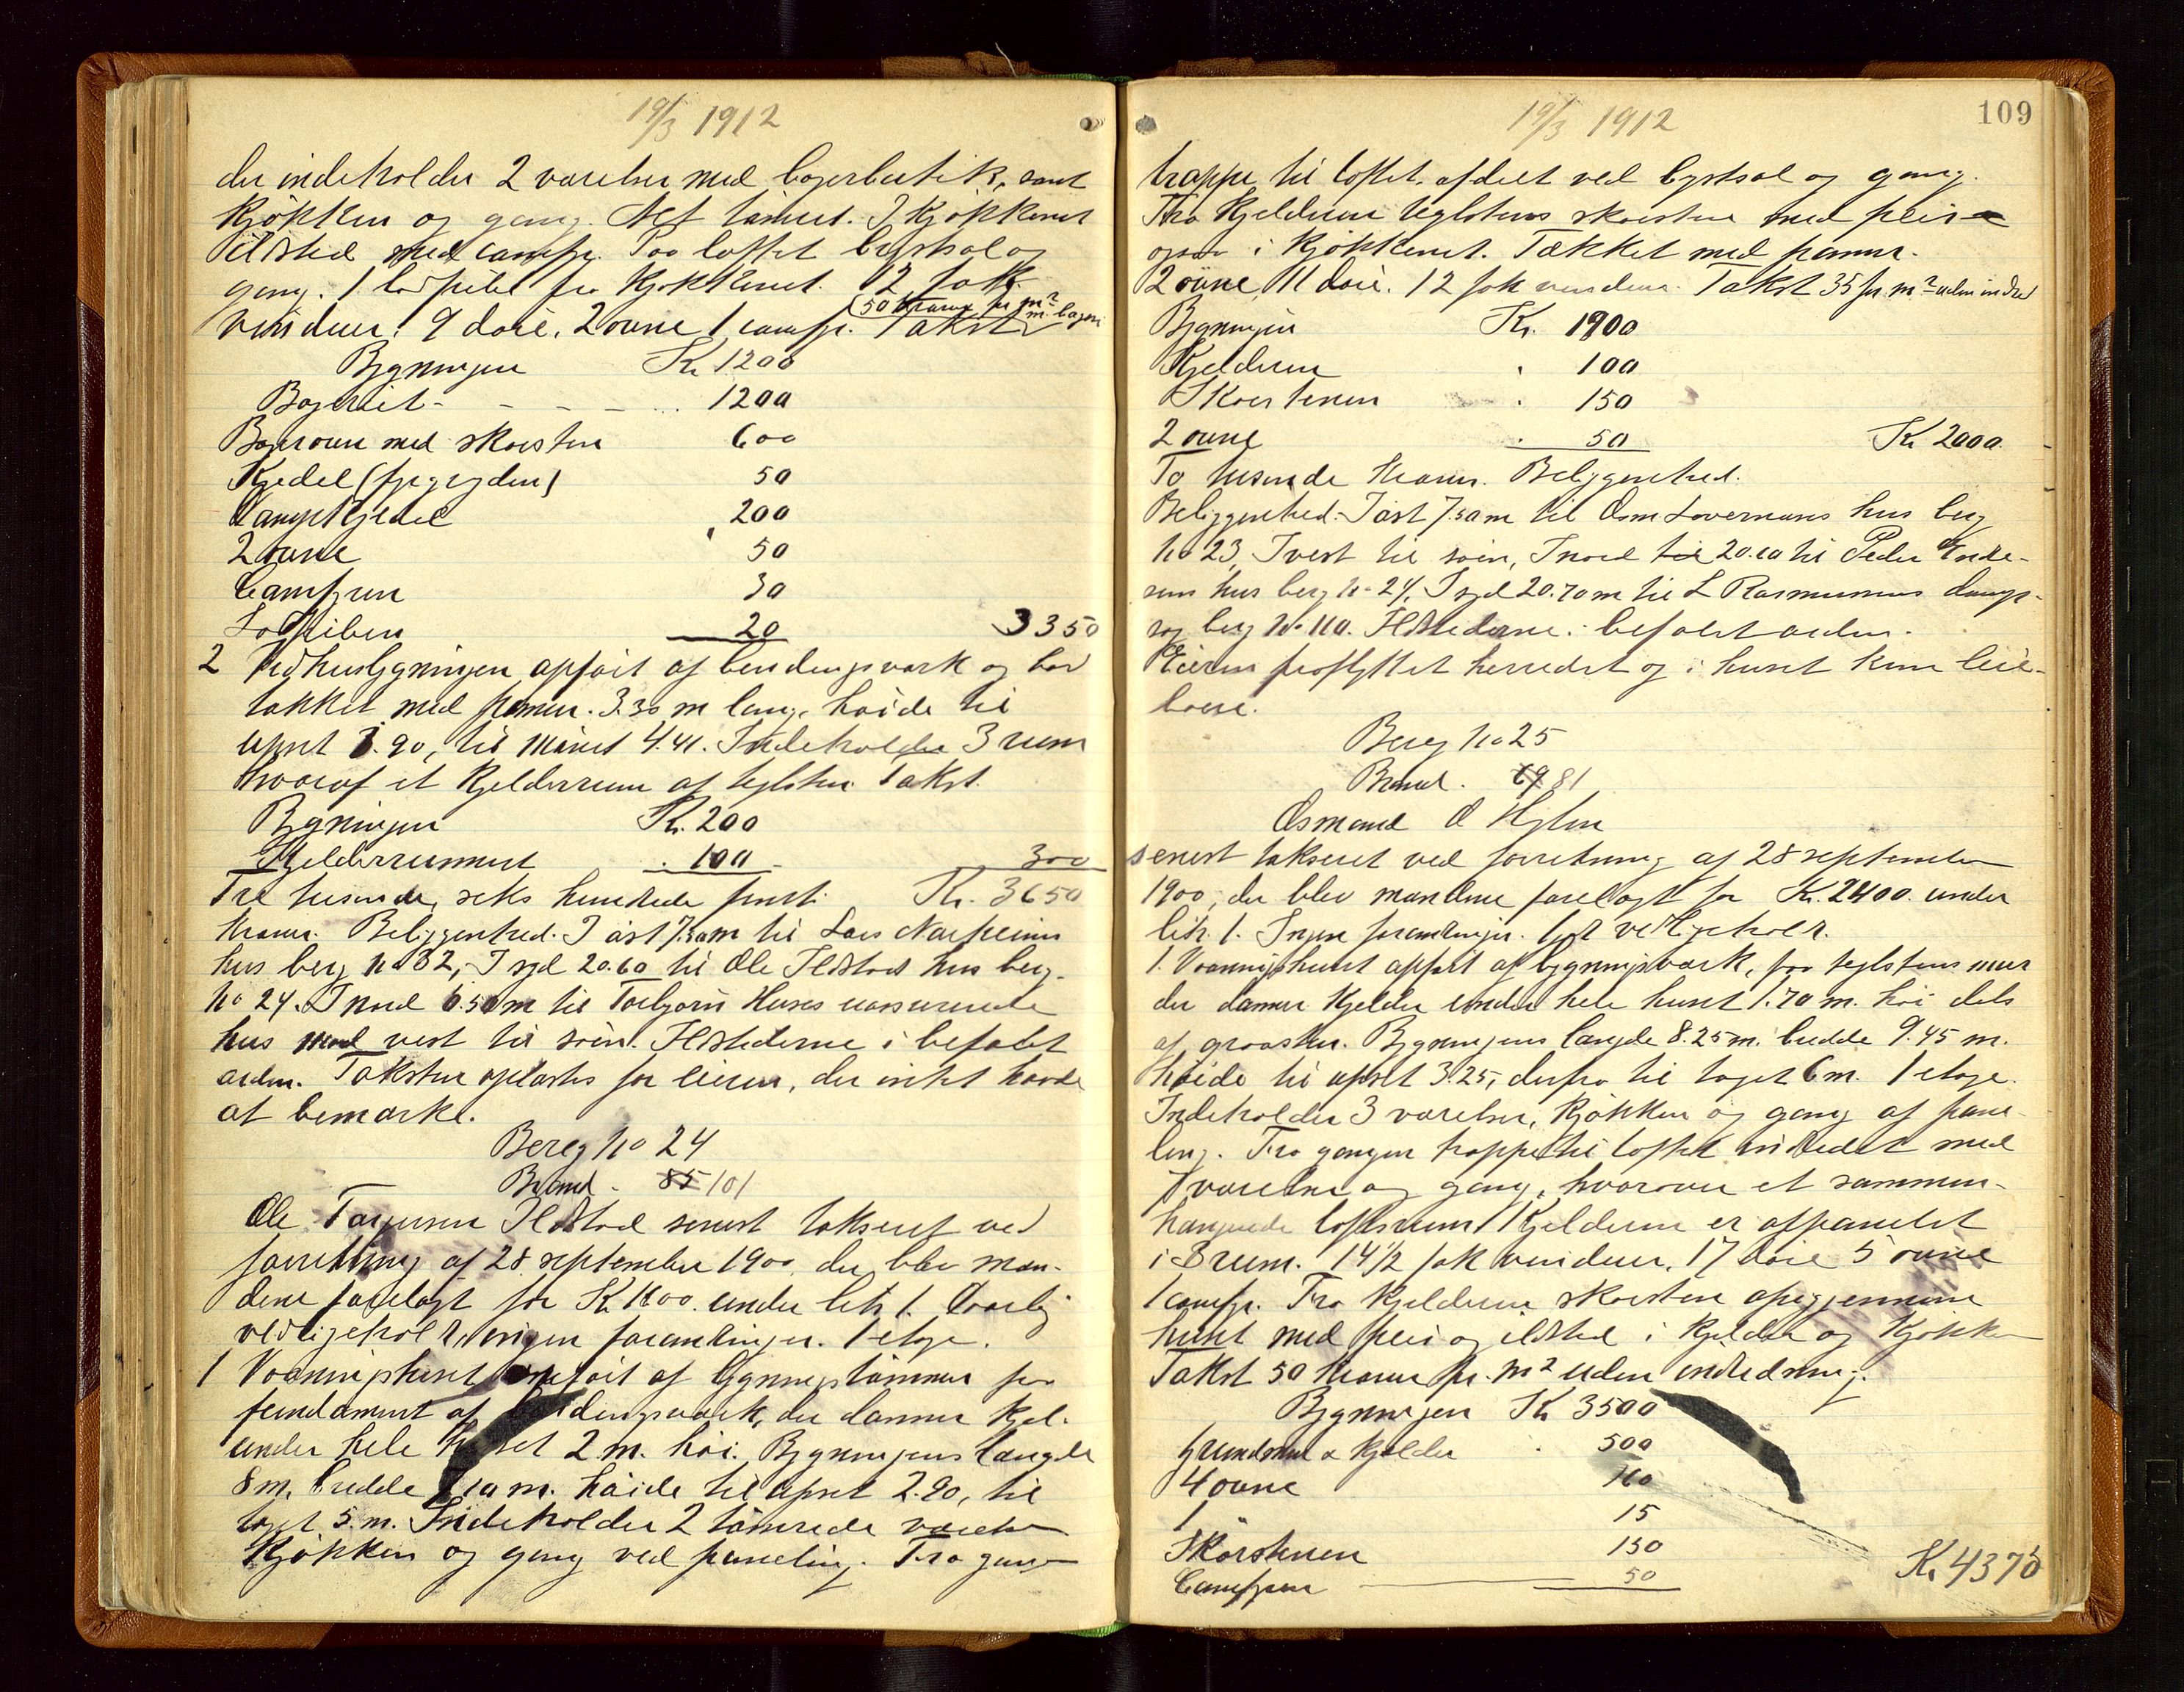 19/3 1912
der indeholder 2 værelser med bagerbutik, samt
kjøkken og gang. Alt tømret. I kjøkkenet
ildsted med camfyr. Paa loftet lystsal og
gang. 1 lodpibe fra kjøkkenet. 12 fok
vinduer. 9 døre. 2 ovne 1 camfyr. Takst (50 kroner pr m²
Bygningen Kr 1200
Bageriet - - - - 1200
Bagerovn med skorsten 600
Kjedel (fyrgryden) 50
Dampkjedel 200
2 ovne 50
Camfyren 30
Lodpiben 20 3350
2 Vedhusbygningen opført af bindingsværk og bord
tækket med panner. 3.30 m lang, høide til
upset 3.90, til mønet 4.41. Indeholder 3 rum
hvoraf et kjelderrum af teglsten. Takst.
Bygningen Kr. 200
Kjelderrummet 100 300
Tre tusinde, seks hundrede femti Kr. 3650
kroner. Beliggenhed. I øst 7.50m til Lars
hus berg no 82, I syd 20.60 til Ole Ildstad hus berg
no 24. I nord 6.50 m til Torbjørn Huses uassurerede
hus mod vest til søen. Ildstederne i befalet
orden. Taksten oplæstes for eieren, der intet havde
at bemærke.
Bereg No 24
Brand. 85 101
Ole Torgersen Ildstad senest takseret ved
forretning af 28 september 1900, der blev man-
dene forelagt for Kr. 1800. under litr 1. Daarlig
vedligeholdt, ingen forandringer. 1 etage.
1 Vaaningshuset opført af bygningstømmer paa
fundament af bindingsværk, der danner kjel.
under hele huset 2 m. høi. Bygningens længde
8 m. bredde 7.10 m. høide til upset 2.90, til
taget 5. m. Indeholder 2 tømrede værelser
kjøkken og gang ved paneling. Fra gang
109
19/3 1912
trappe til loftet. afdelt ved lystsal og gang.
Fra kjelderen teglstens skorsten med peis
ogsaa i kjøkkenet. Tækket med panner.
2 ovne, 11 døre. 12 fok vinduer. Takst 35 pr. m² uden indre
Bygningen Kr. 1900
Kjelderen 100
Skorstenen 150
2 ovne 50 Kr. 2000.
To tusinde kroner. Beliggenhed.
Beliggenhed. I øst 7.50m til Osm hus berg
no 23, I vest til søen, I nord til 20.60 til Peder Ende-
sens hus berg no 24, I syd 20.70 m til L Rasmussens damp-
sag berg No 110. Ildstederne i befalet orden.
Eieren fraflyttet herredet og i huset kun leie-
boere.
Bereg No 25
Brand. 69 81
Osmund O Hylen
senest takseret ved forretning af 28 september
1900, der blev mandene forelagt for Kr. 2400. under
litr. 1. Ingen forandringer. Godt vedligeholdt.
1. Vaaningshuset opført af bygningsværk, paa teglstens mur
der danner kjelder under hele huset 1.70 m. høi dels
af graasten. Bygningens længde 8.25 m. bredde 9.45 m.
høide til upset 3.25, derfra til taget 6 m. 1 etage.
Indeholder 3 værelser, kjøkken og gang af pane-
ling. Fra gangen trappe til loftet indredet med
7 værelser og gang, hvorover et sammen-
hængende loftsrum. Kjelderen er afpanelet
i 8 rum. 14½ fok vinduer. 17 døre 5 ovne
1 camfyr. Fra kjelderen skorsten opigjennem
huset med peis og ildsted i kjelder og kjøkken
Takst 50 kroner pr. m² uden indredning.
Bygningen Kr 3500
Grundmur & kjelder 500
4 ovne 160
1 15
Skorstenen 150
Camfyren 50
Kr 4375